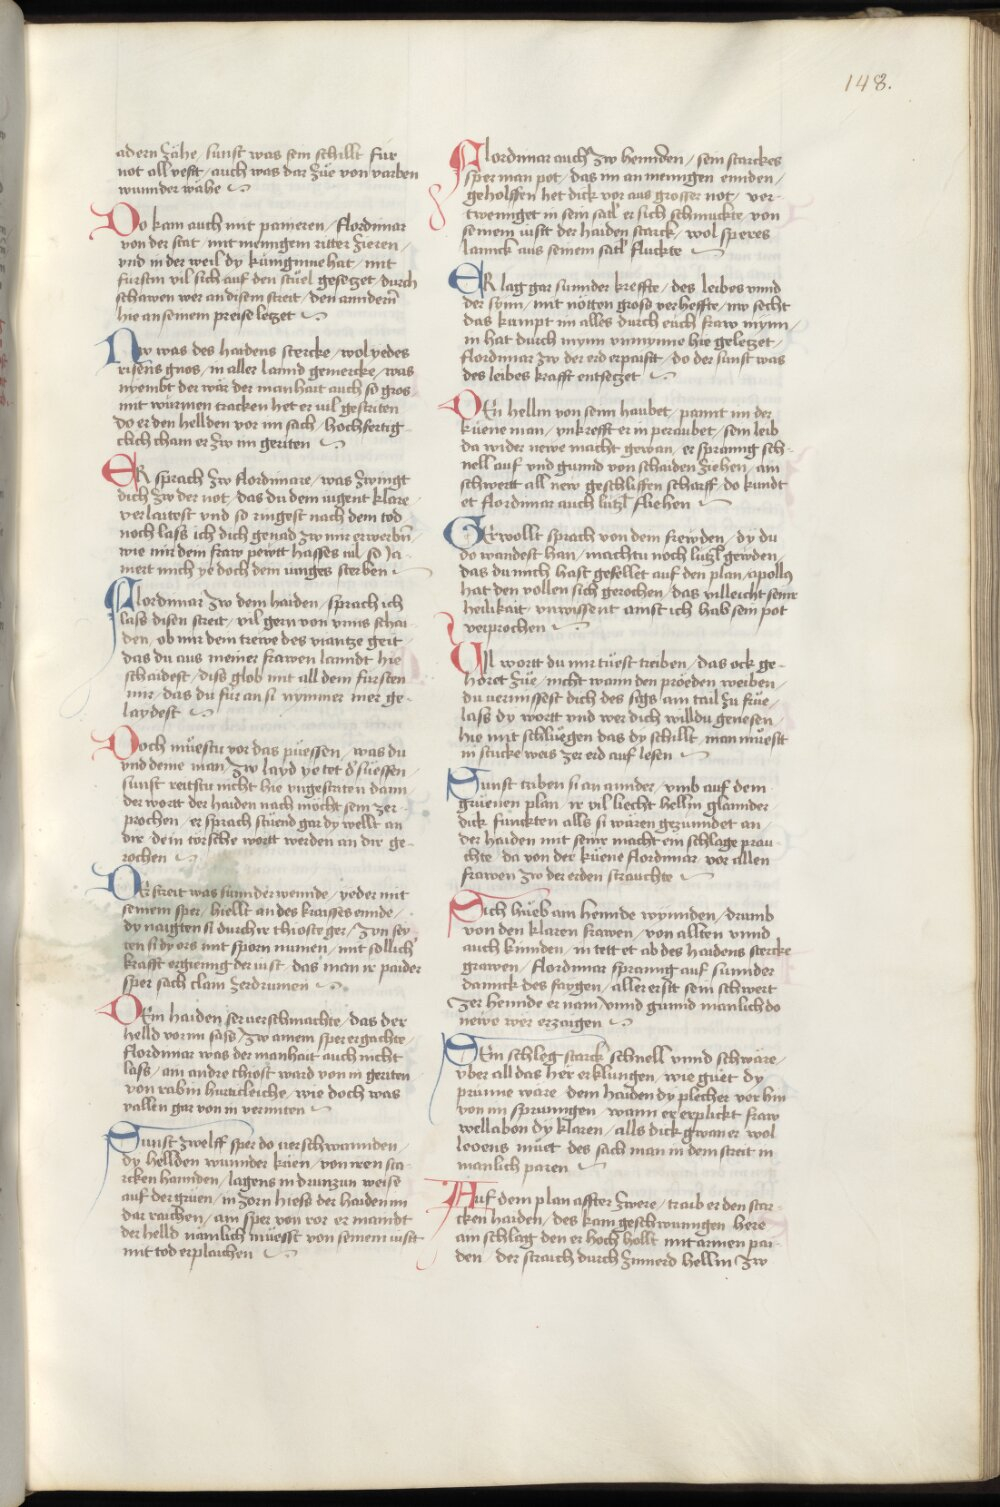 148.
adern zähe / sunst was sein schillt für
not all vesst / auch was dar züe von varben
wunnder wähe
Do kam auch mit pameren / flordimar
von der stat / mit mennigem ritter zieren /
vnd in der weil dy küniginne hat / mit
fürstin vil sich auf den stüel gesetzet / durch
schawen wer an disem streit / den anndern
hie an seinem preise letzet
Nw was des haidens stercke / wol yedes
risens gnos / in aller lannd gemercke / was
nyembt der wär der manhait auch so gros
mit würmen tracken het er vil gestriten
do er den hellden vor im sach / hochfertig
clich cham er zw im geriten
ER sprach zw flordimare / was zwingt
dich zw der not / das du dem iugent klare
verlaitest vnd so ringest nach dem tod
noch lass ich dich genad zw mir erwerbn
wie mir dein fraw pewtt hasses vil / so Ja
mert mich ye doch dein iunges sterben
Flordimar zw dem haiden / sprach ich
lass disen streit / vil gern von vnns schai
den / ob mir dein trewe des viantze geit
das du aus meiner frawen lanndt hie
schaidest / diss glob mit all dein fürsten
mir / das du für an si nymmer mer ge
laydest
Doch müestu vor das püessen / was du
vnd deine man / zw layd ye tet der süessen
sunst reitstu nicht hie vngestriten dann
der wortt der haiden nach mocht sein zer
prochen / er sprach stüend gar dy wellt an
dir / dein törsche wortt werden an dir ge
rochen
Der streit was sunnder wennde / yeder mit
seinem sper / hiellt an des kraisses ennde /
dy naigten si durch ir thioste ger / zun sey
ten si dy ors mit sporn numen / mit sollich
krafft ergienng der iust / das man ir paider
sper sach clain zerdrumen
Dem haiden ser verschmachte / das der
helld vor im sass / zw ainem sper er gachte
flordimar was der manhait auch nicht
lass / ain andre thiost ward von in geriten
von rabin hurticleiche / wie doch was
vallen gar von in vermiten
Sunst zwelff sper do verschwannden /
dy hellden wunnder küen / von iren sta
rcken hannden / lagens in drunzun weise
auf der grüen / in zorn hiess der haiden im
dar raichen / ain sper von ror er maindt
der helld nämlich müesst von seinem iusst
mit tod erplaichen
Flordimar auch zw hennden / sein starckes
sper man pot / das im an mennigen ennden /
geholffen het dick vor aus grosser not / ver
twenniget in sein satl er sich schmuckte / von
seinem iusst der haiden starck / wol speres
lannck aus seinem satl fluckte
ER lag gar sunnder kreffte / des leibes vnnd
der synn / mit nötten gross verheffte / nw secht
das kumpt im alles durch euch fraw mynn /
in hat durch mynn vnmynne hie geletzet /
flordimar zw der erd erpaisst / do der sunst was
des leibes krafft entsetzet
DEn hellm von seim haubet / pannt im der
küene man / vnkrefft er in peraubet / sein leib
da wider newe macht gewan / er sprannng sch
nell auf vnd gunnd von schaiden ziehen / ain
schwertt all new geschliffen scharff / do kundt
et flordimar auch lützl fliehen
Er wollt sprach von dem frewden / dy du
do wandest han / machtu noch lützl gewden /
das du mich hast gefellet auf den plan / apollo
hat den vollen sich gerochen / das villeicht seiner
heilikait / vnwissent annst ich hab sein pot
verprochen
Vil wortt du mir tüest treiben / das ock ge
höret züe / nicht wann den pröeden weiben /
du vermissest dich des sigs ain tail zu früe /
lass dy wortt vnd wer dich willdu genesen /
hie mit schluegen das dy schillt / man müesst
in stucke weis zer erd auf lesen
Sunst triben si an annder / vmb auf dem
grüenen plan / ir vil liecht hellm glannder /
dick funckten alls si wären gezunndet an /
der haiden mit seiner macht ein schlage prau
chte / da von der küene flordimar / vor allen
frawen zw der erden strauchte
Sich hüeb ain hennde wynnden / drumb
von den klaren frawen / von allten vnnd
auch kinnden / in tett et ab des haidens stercke
grawen / flordimar spranng auf sunnder
dannck des faygen / aller erst sein schwert
zer hennde er nam / vnnd gunnd manlich do
newe wer erzaigen
DEin schleg starck schnell vnnd schwäre /
vber all das her erklungen / wie güet dy
prünne wäre / dem haiden dy plecher vor hin
von im sprunngen / wann er erplickt fraw
wellabon dy klaren / alls dick gwan er wol
leoens müet / des sach man in dem streit in
manlich paren
Auf dem plan affter zwere / traib er den star
cken haiden / des kam geschwunngen here
ain schlag den er hoch hollt mit armen pai
den / der straich durch zimierd hellm zw